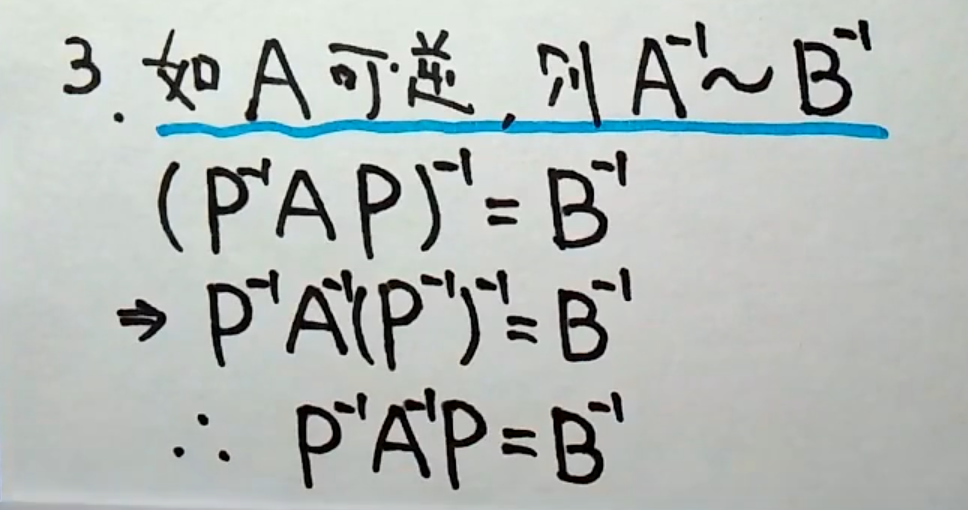 3. 如A可逆,则A⁻¹~B⁻¹
(P⁻¹AP)⁻¹=B⁻¹
⇒ P⁻¹A⁻¹(P⁻¹)⁻¹=B⁻¹
∴ P⁻¹A⁻¹P=B⁻¹